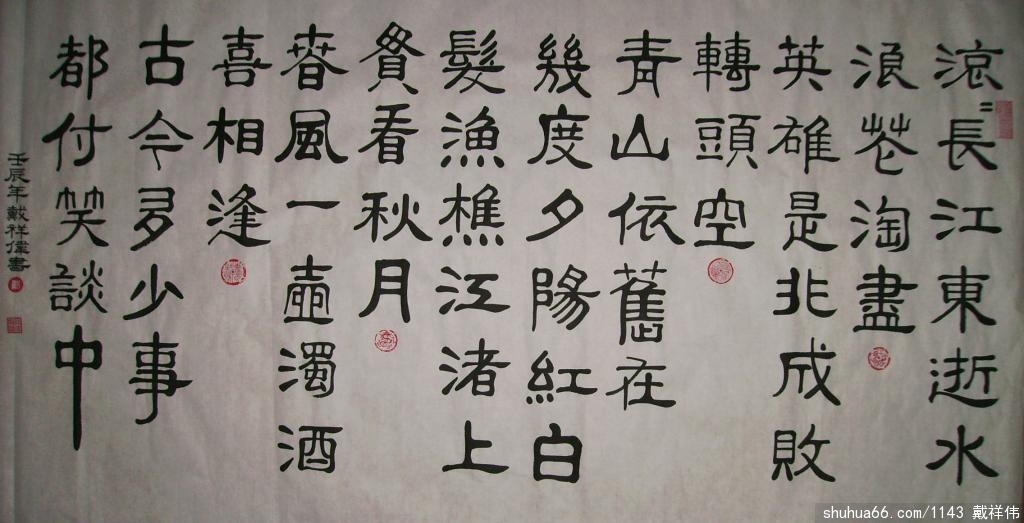 滚〻長江東逝水
浪花淘盡
英雄是非成敗
轉頭空
青山依舊在
幾度夕陽紅白
髮漁樵江渚上
貫看秋月
春風一壺濁酒
喜相逢
古今多少事
都付笑談中
壬辰年戴祥偉書
shuhua66.com/1143 戴祥伟